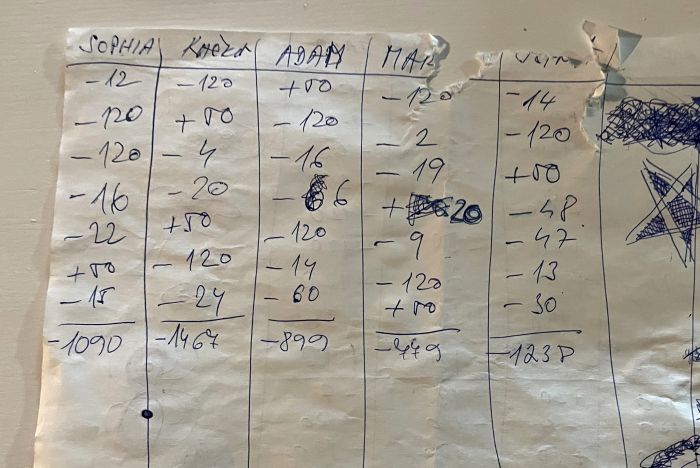 SOPHIA ADAM
-12 -120 +50 -120 -14
-120 +50 -120 -2 -120
-120 -4 -16 -19 +50
-16 -20 -6 +20 -48
-22 +50 -120 -9 -47
+50 -120 -14 -120 -13
-15 -24 -60 +50 -30
-1090 -1467 -899 -779 -1238